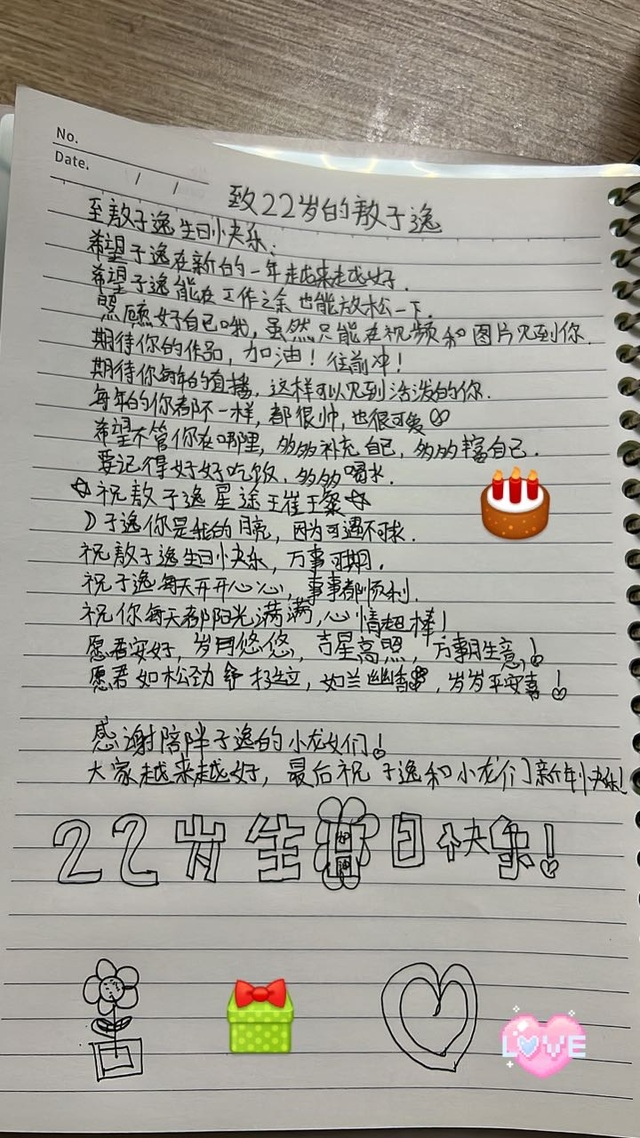 No.
Date. / /
致22岁的敖子逸
至敖子逸生日小快乐:
希望子逸在新的一年越来越好.
希望子逸能在工作之余也能放松一下.
照顾好自己哦,虽然只能在视频和图片见到你.
期待你的作品,加油!往前冲!
期待你每年的直播,这样可以见到活泼的你.
每年的你都不一样,都很帅,也很可爱
希望不管你在哪里,多多补充自己,多多丰富自己.
要记得好好吃饭,多多喝水.
祝敖子逸星途王崔王粲
子逸你是我的月亮,因为可遇不可求.
祝敖子逸生日小快乐,万事可期.
祝子逸每天开开心心,事事都顺利.
祝你每天都阳光满满,心情超棒!
愿君安好,岁月悠悠,吉星高照,万事生意!
愿君如松劲挺立,如兰幽香,岁岁平安喜!
感谢陪伴子逸的小龙女们!
大家越来越好,最后祝子逸和小龙们新年小快乐!
22岁生日快乐!
LOVE